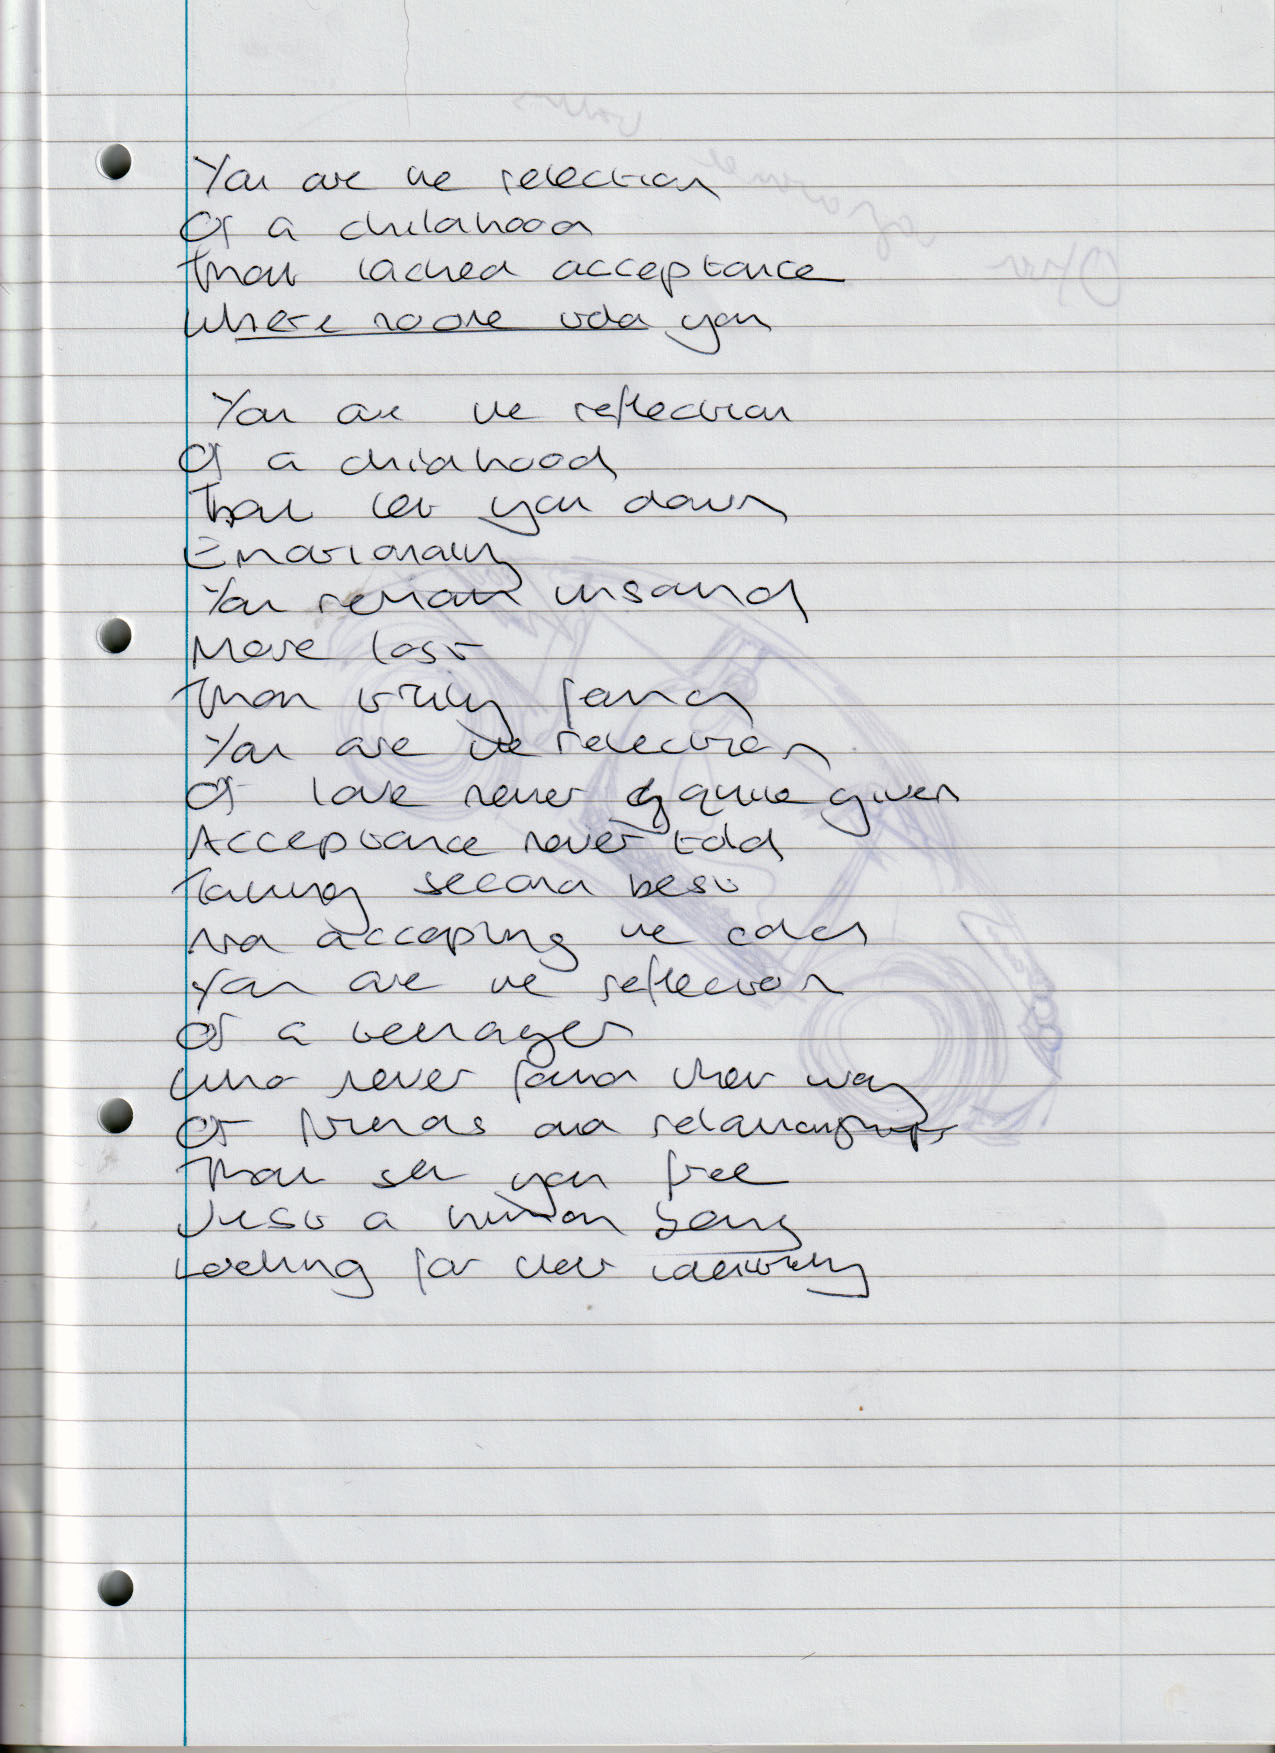 You are the relection
Of a childhood
That lacked acceptance
Where noone told you
You are the reflection
Of a childhood
That let you down
Emotionally
You remain unsound
More lost
Than truly found
You are the relection
Of love never quite given
Acceptance never told
Taking second best
And accepting the cold
You are the reflection
Of a teenager
Who never found their way
Of friends and relationships
That set you free
Just a human being
Looking for their identity